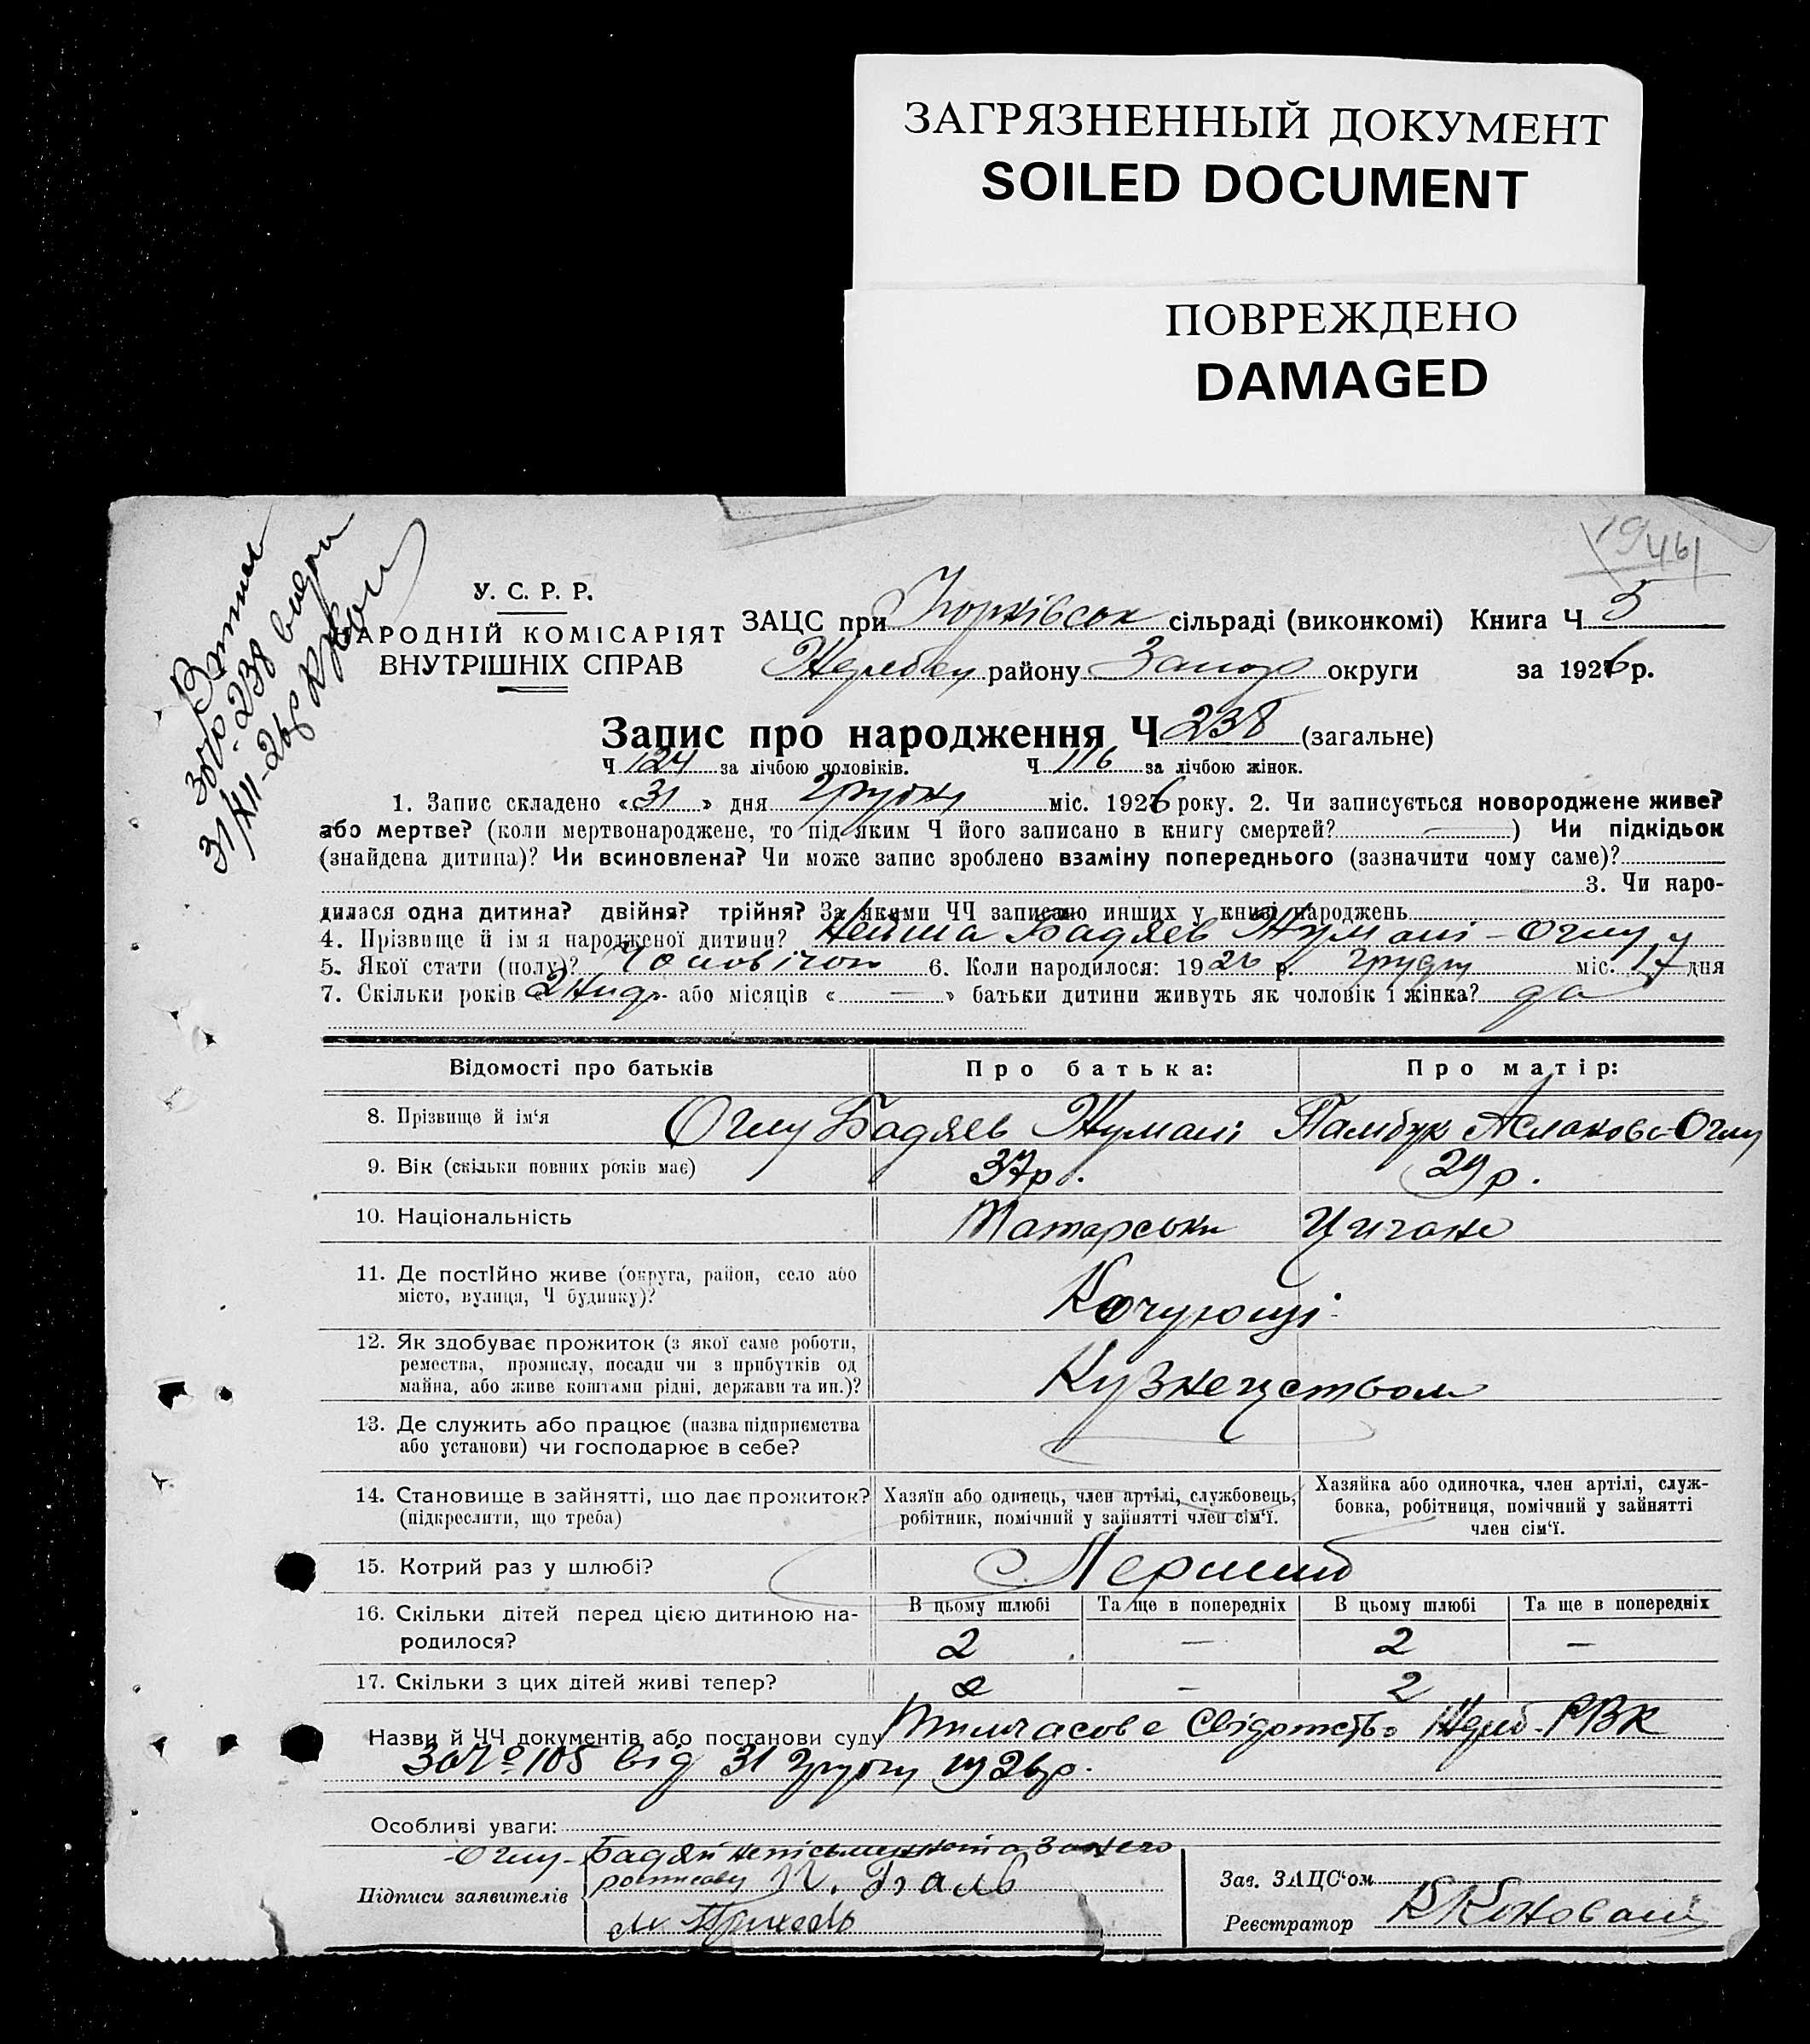 ЗАГРЯЗНЕННЫЙ ДОКУМЕНТ
SOILED DOCUMENT
ПОВРЕЖДЕНО
DAMAGED
1946
Витяг
за № 238 видан
31/XII-26р.
У. С. Р. Р.
НАРОДНІЙ КОМІСАРІЯТ
ВНУТРІШНІХ СПРАВ
ЗАЦС при сільраді (виконкомі) Книга Ч 5
району Запор округи за 1926 р.
Запис про народження Ч 238 (загальне)
Ч 124 за лічбою чоловіків. Ч 116 за лічбою жінок.
1. Запис складено «31» дня грудня міс. 1926 року. 2. Чи записується новороджене живе?
або мертве? (коли мертвонароджене, то під яким Ч його записано в книгу смертей? —) Чи підкідьок
(знайдена дитина)? Чи всиновлена? Чи може запис зроблено взаміну попереднього (зазначити чому саме)?
3. Чи наро-
дилася одна дитина? двійня? трійня? За якими ЧЧ записано инших у книзі народжень
4. Прізвище й імя народженої дитини? Бадяев Жумалі-Оглу
5. Якої стати (полу)? Чоловічої 6. Коли народилося: 1926 р. грудня міс. 17 дня
7. Скільки років « або місяців « — » батьки дитини живуть як чоловік і жінка? да
Відомості про батьків Про батька: Про матір:
8. Прізвище й ім'я Оглу Бадяев Жумалі Памбук Аслакова-Оглу
9. Вік (скільки повних років має) 37р. 29р.
10. Національність Татарськи Цигане
11. Де постІйно живе (округа, район, село або
місто, вулиця, Ч будинку)? Кочующі
12. Як здобуває прожиток (з якої саме роботи,
ремества, промислу, посади чи з прибутків од
майна, або живе коштами рідні, держави та ин.)? Кузнецством
13. Де служить або працює (назва підприємства
або установи) чи господарює в себе?
14. Становище в зайнятті, що дає прожиток?
(підкреслити, що треба)
Хазяїн або одинець, член артілі, службовець,
робітник, помічний у зайнятті член сім'ї.
Хазяйка або одиночка, член артілі, служ-
бовка, робітниця, помічний у зайнятті
член сім'ї.
15. Котрий раз у шлюбі? Перший
16. Скільки дітей перед цією дитиною на-
родилося?
В цьому шлюбі Та ще в попередніх В цьому шлюбі Та ще в попередніх
2 — 2 —
17. Скільки з цих дітей живі тепер? 2 — 2
Назви й ЧЧ документів або постанови суду Тимчасове Свідотство Жереб. РВК
За № 105 від 31 грудня 1926р.
Особливі уваги:
Оглу-Бадяй неписьменний а за нього
росписався
Підписи заявителів
Зав. ЗАЦС'ом
Реєстратор